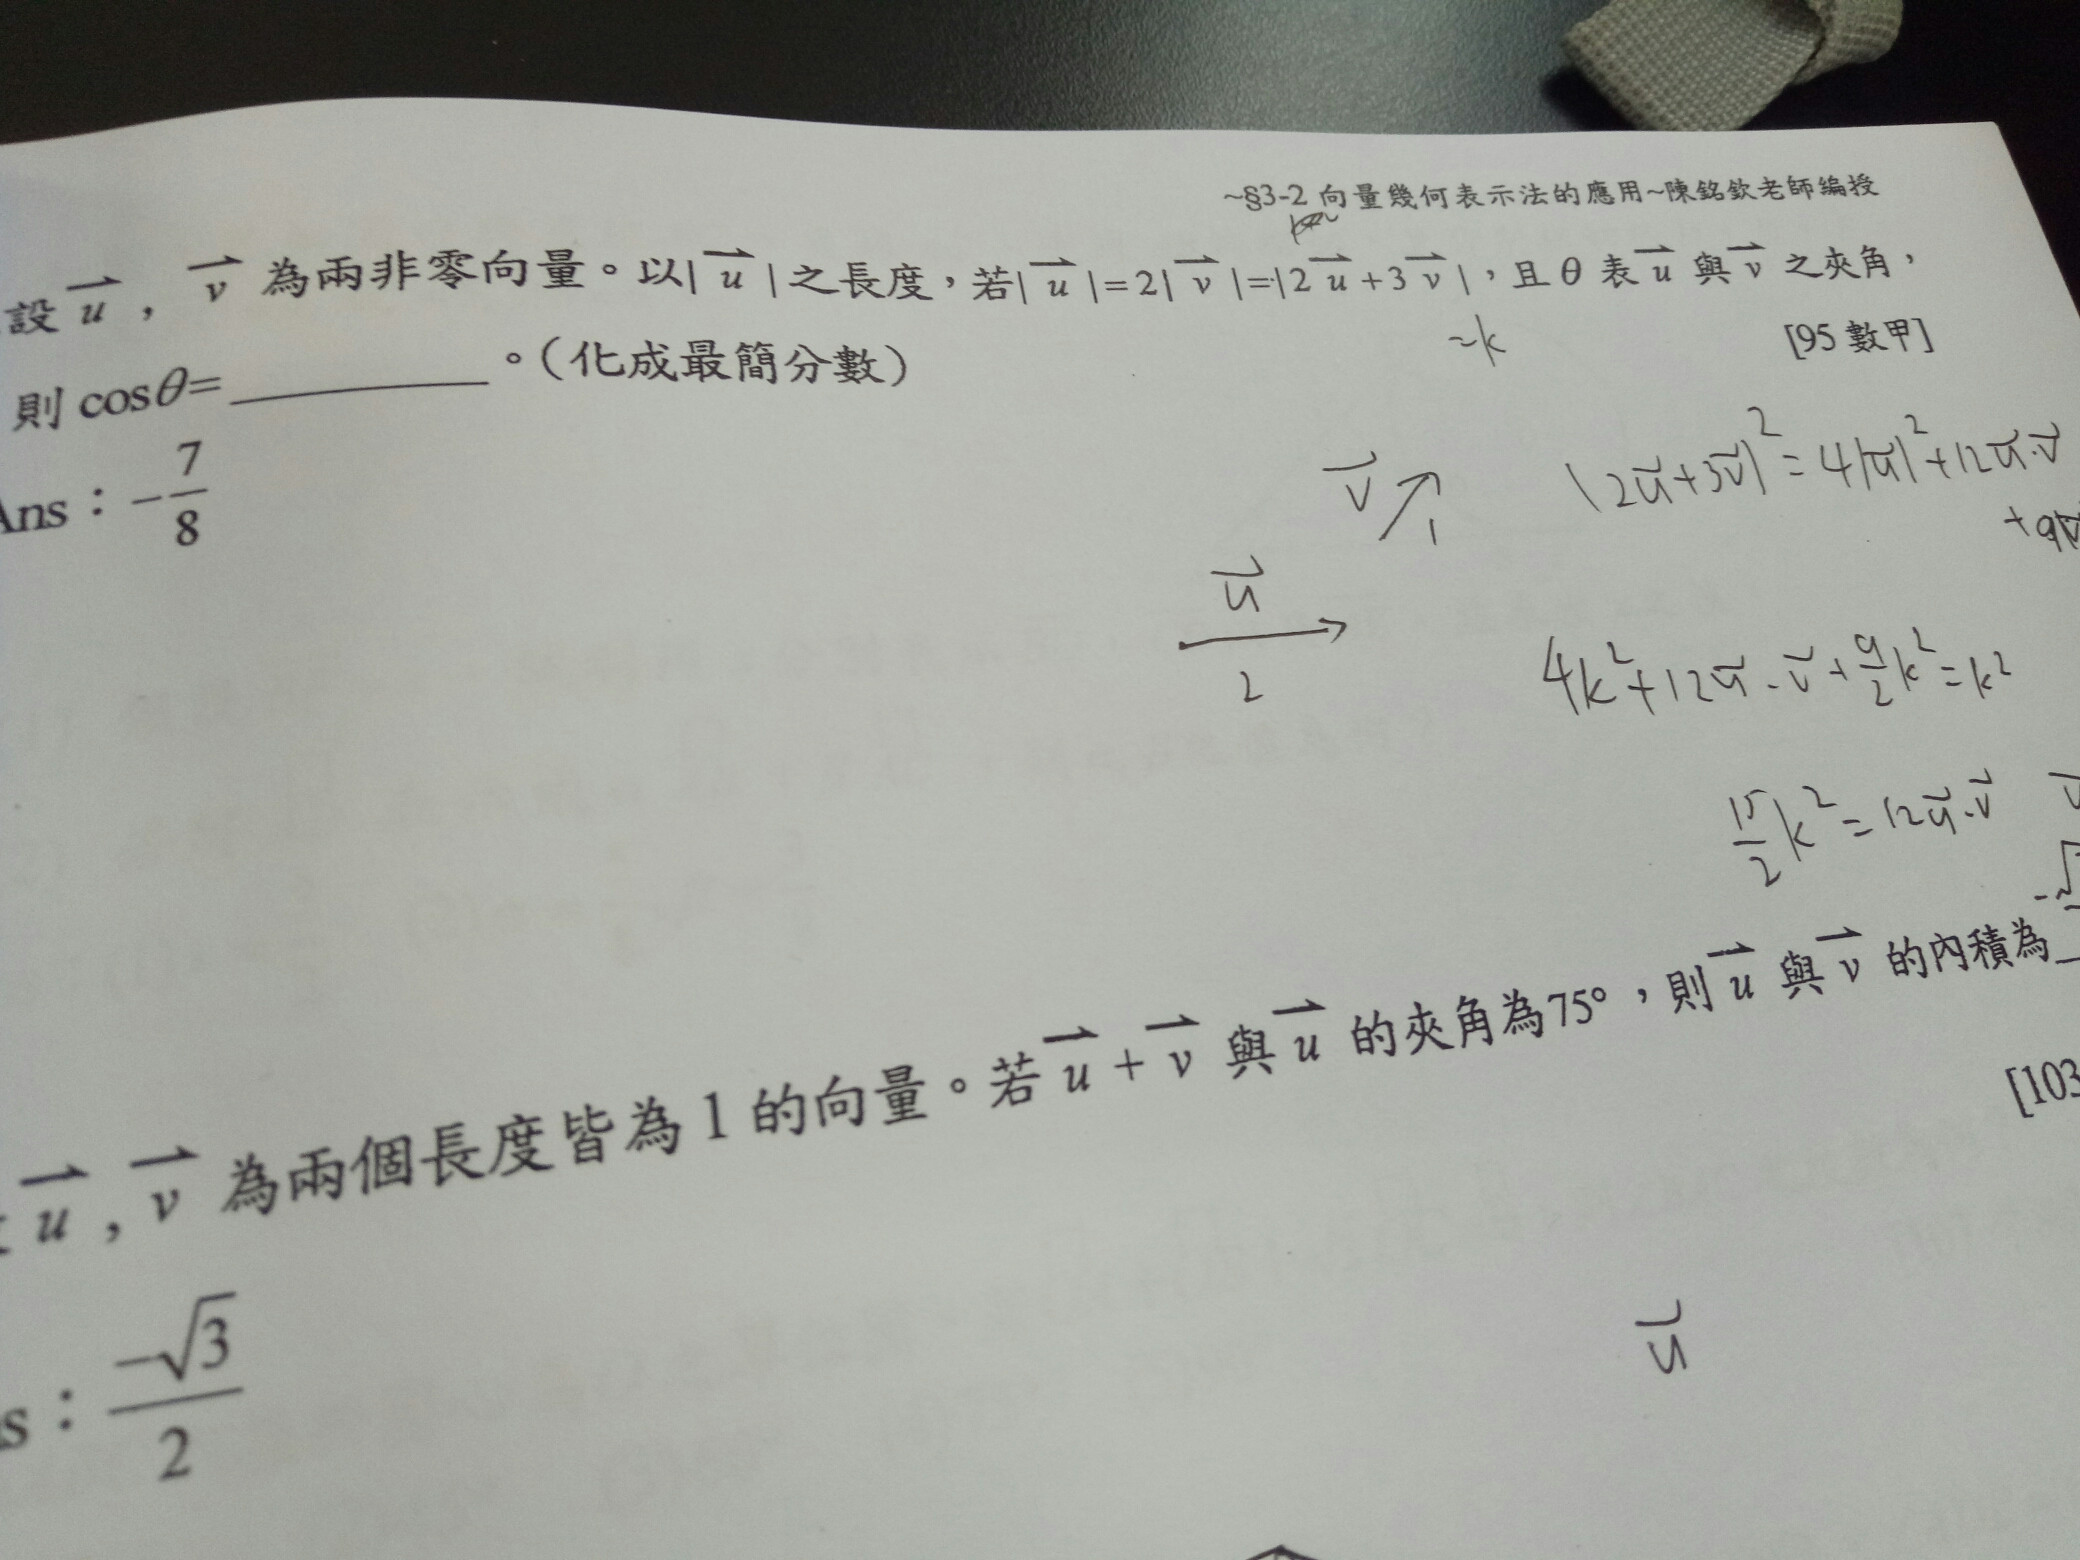 ~§3-2 向量幾何表示法的應用~陳銘欽老師編授
設 u⃗ , v⃗ 為兩非零向量。以|u⃗|之長度,若|u⃗|=2|v⃗|=|2u⃗+3v⃗|,且 θ 表 u⃗ 與 v⃗ 之夾角,
~k
則 cosθ=________。(化成最簡分數)
[95 數甲]
Ans:-7/8
v⃗
1
u⃗
2
|2u⃗+3v⃗|²=4|u⃗|²+12u⃗·v⃗
+9|v⃗
4k²+12u⃗·v⃗+9/2k²=k²
15/2k²=12u⃗·v⃗
u⃗ , v⃗ 為兩個長度皆為 1 的向量。若 u⃗+v⃗ 與 u⃗ 的夾角為75°,則 u⃗ 與 v⃗ 的內積為_
[103
s:-√3/2
u⃗